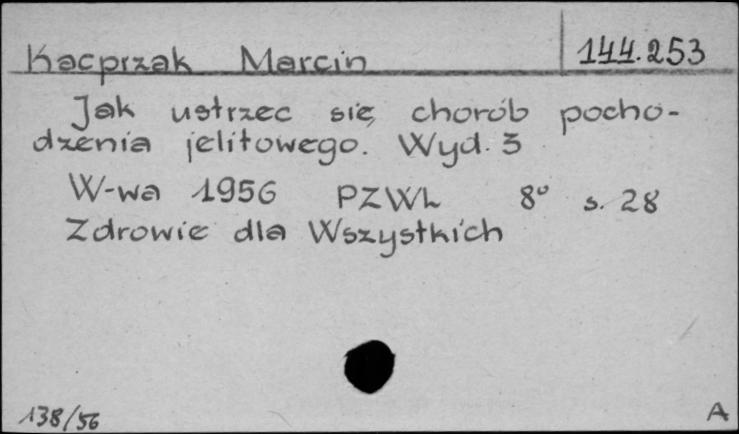 Kacprzak Marcin 144.253
Jak ustrzec się chorób pocho-
dzenia jelitowego. Wyd. 3
W-wa 1956 PZWL 8° s. 28
Zdrowie dla Wszystkich
138/56 A